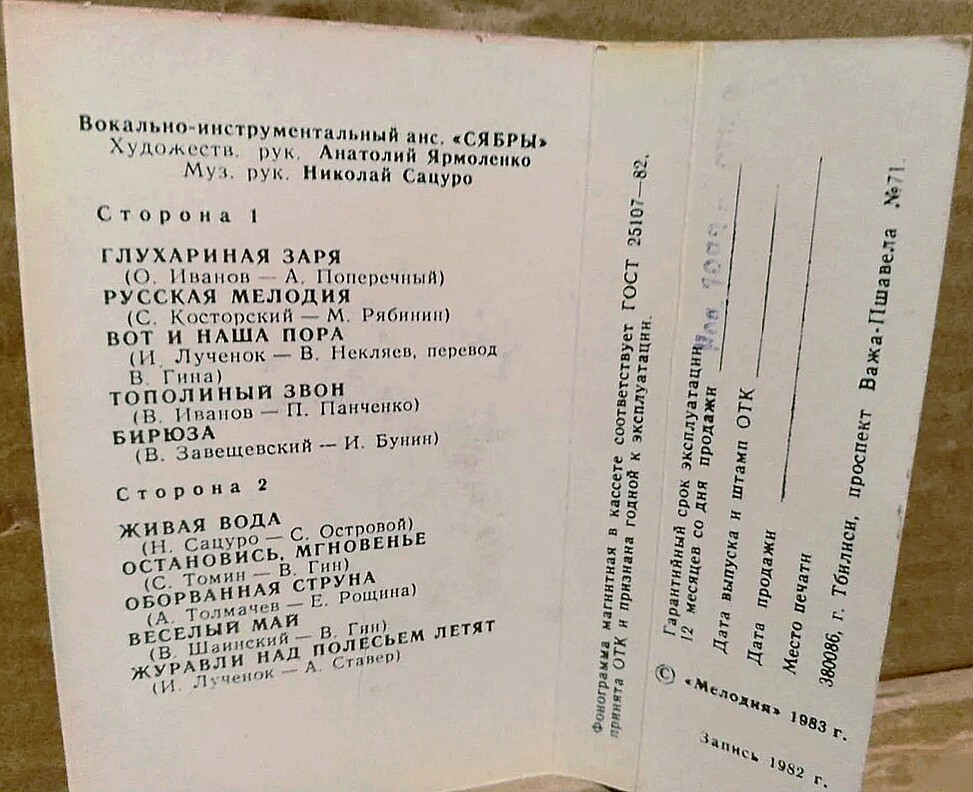 Вокально-инструментальный анс. «СЯБРЫ»
Художеств. рук. Анатолий Ярмоленко
Муз. рук. Николай Сацуро
Сторона 1
ГЛУХАРИНАЯ ЗАРЯ
(О. Иванов — А. Поперечный)
РУССКАЯ МЕЛОДИЯ
(С. Косторский — М. Рябинин)
ВОТ И НАША ПОРА
(И. Лученок — В. Некляев, перевод
В. Гина)
ТОПОЛИНЫЙ ЗВОН
(В. Иванов — П. Панченко)
БИРЮЗА
(В. Завещевский — И. Бунин)
Сторона 2
ЖИВАЯ ВОДА
(Н. Сацуро — С. Островой)
ОСТАНОВИСЬ, МГНОВЕНЬЕ
(С. Томин — В. Гин)
ОБОРВАННАЯ СТРУНА
(А. Толмачев — Е. Рощина)
ВЕСЕЛЫЙ МАЙ
(В. Шаинский — В. Гин)
ЖУРАВЛИ НАД ПОЛЕСЬЕМ ЛЕТЯТ
(И. Лученок — А. Ставер)
Фонограмма магнитная в кассете соответствует ГОСТ 25107—82,
принята ОТК и признана годной к эксплуатации.
Гарантийный срок эксплуатации
12 месяцев со дня продажи
Дата выпуска и штамп ОТК
Дата продажи
Место печати
380086, г. Тбилиси, проспект Важа-Пшавела №71.
© «Мелодия» 1983 г.
Запись 1982 г.